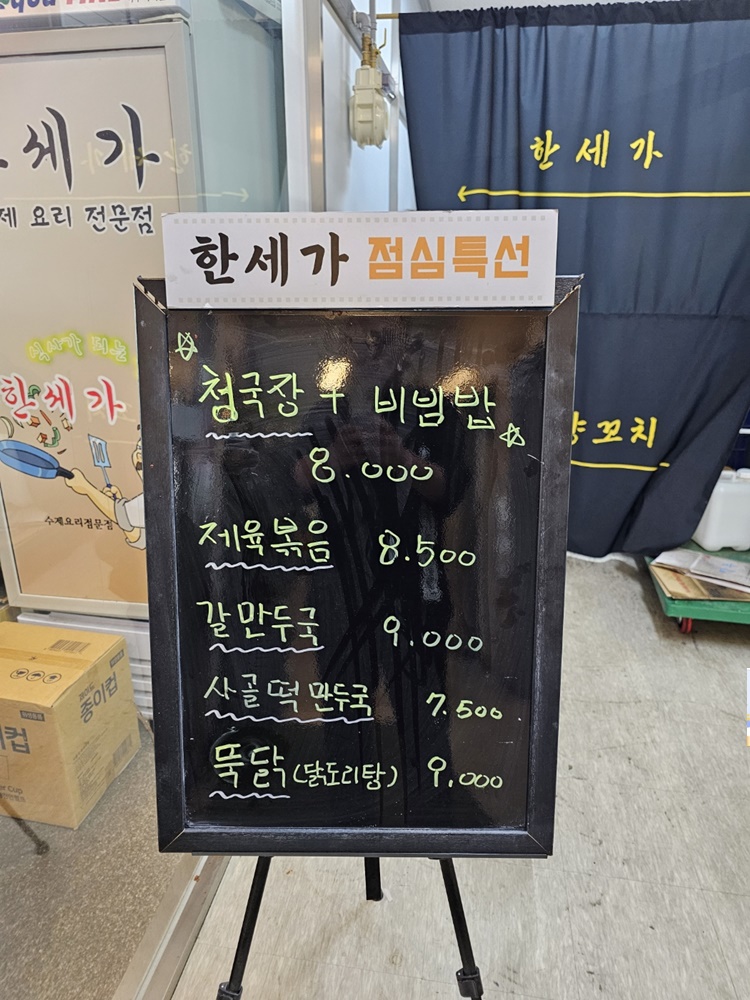 세가
제 요리 전문점
한세가
수제요리점문점
종이컵
이컵
한세가
꼬치
한세가 점심특선
청국장 + 비빔밥
8.000
제육볶음 8.500
갈만두국 9.000
사골떡만두국 7.500
뚝닭(닭도리탕) 9,000